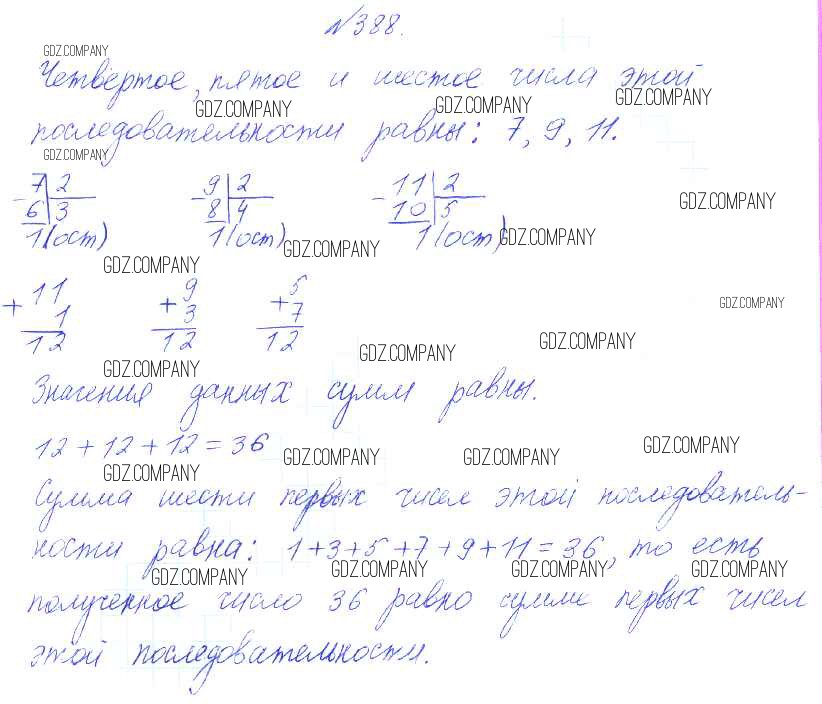 №388.
GDZ.COMPANY
Четвертое, пятое и шестое числа этой
GDZ.COMPANY GDZ.COMPANY GDZ.COMPANY
последовательности равны: 7, 9, 11.
GDZ.COMPANY
- 7 2 - 9 2 - 11 2
6 3 8 4 10 5
GDZ.COMPANY
1(ост) 1(ост) 1(ост)
GDZ.COMPANY GDZ.COMPANY GDZ.COMPANY
11 9 5
+ 1 + 3 + 7
GDZ.COMPANY
12 12 12
GDZ.COMPANY GDZ.COMPANY GDZ.COMPANY
Значения данных сумм равны.
12 + 12 + 12 = 36
GDZ.COMPANY GDZ.COMPANY GDZ.COMPANY GDZ.COMPANY
Сумма шести первых чисел этой последователь-
ности равна: 1+3+5+7+9+11=36, то есть
GDZ.COMPANY GDZ.COMPANY GDZ.COMPANY GDZ.COMPANY
полученное число 36 равно сумме первых чисел
этой последовательности.